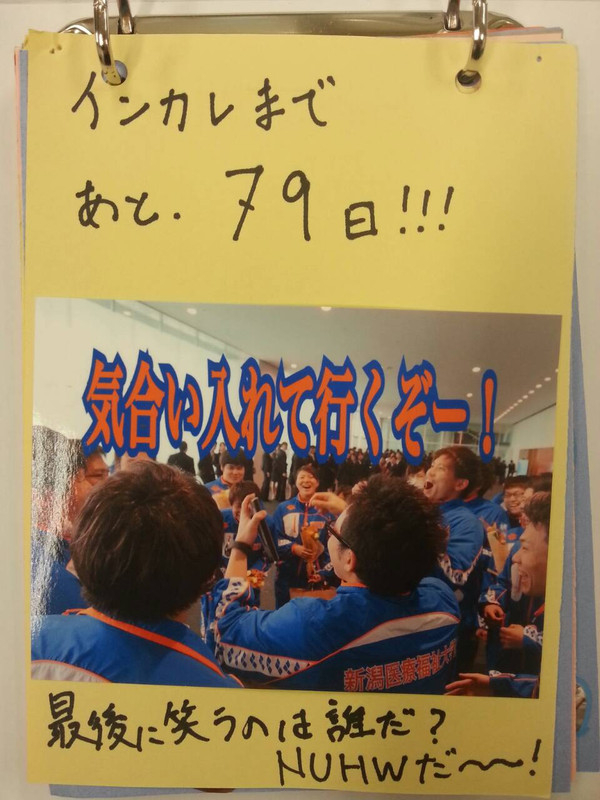 インカレまで
あと. 79日!!!
気合い入れて行くぞー!
新潟医療福祉大学
最後に笑うのは誰だ?
NUHWだ〜〜!